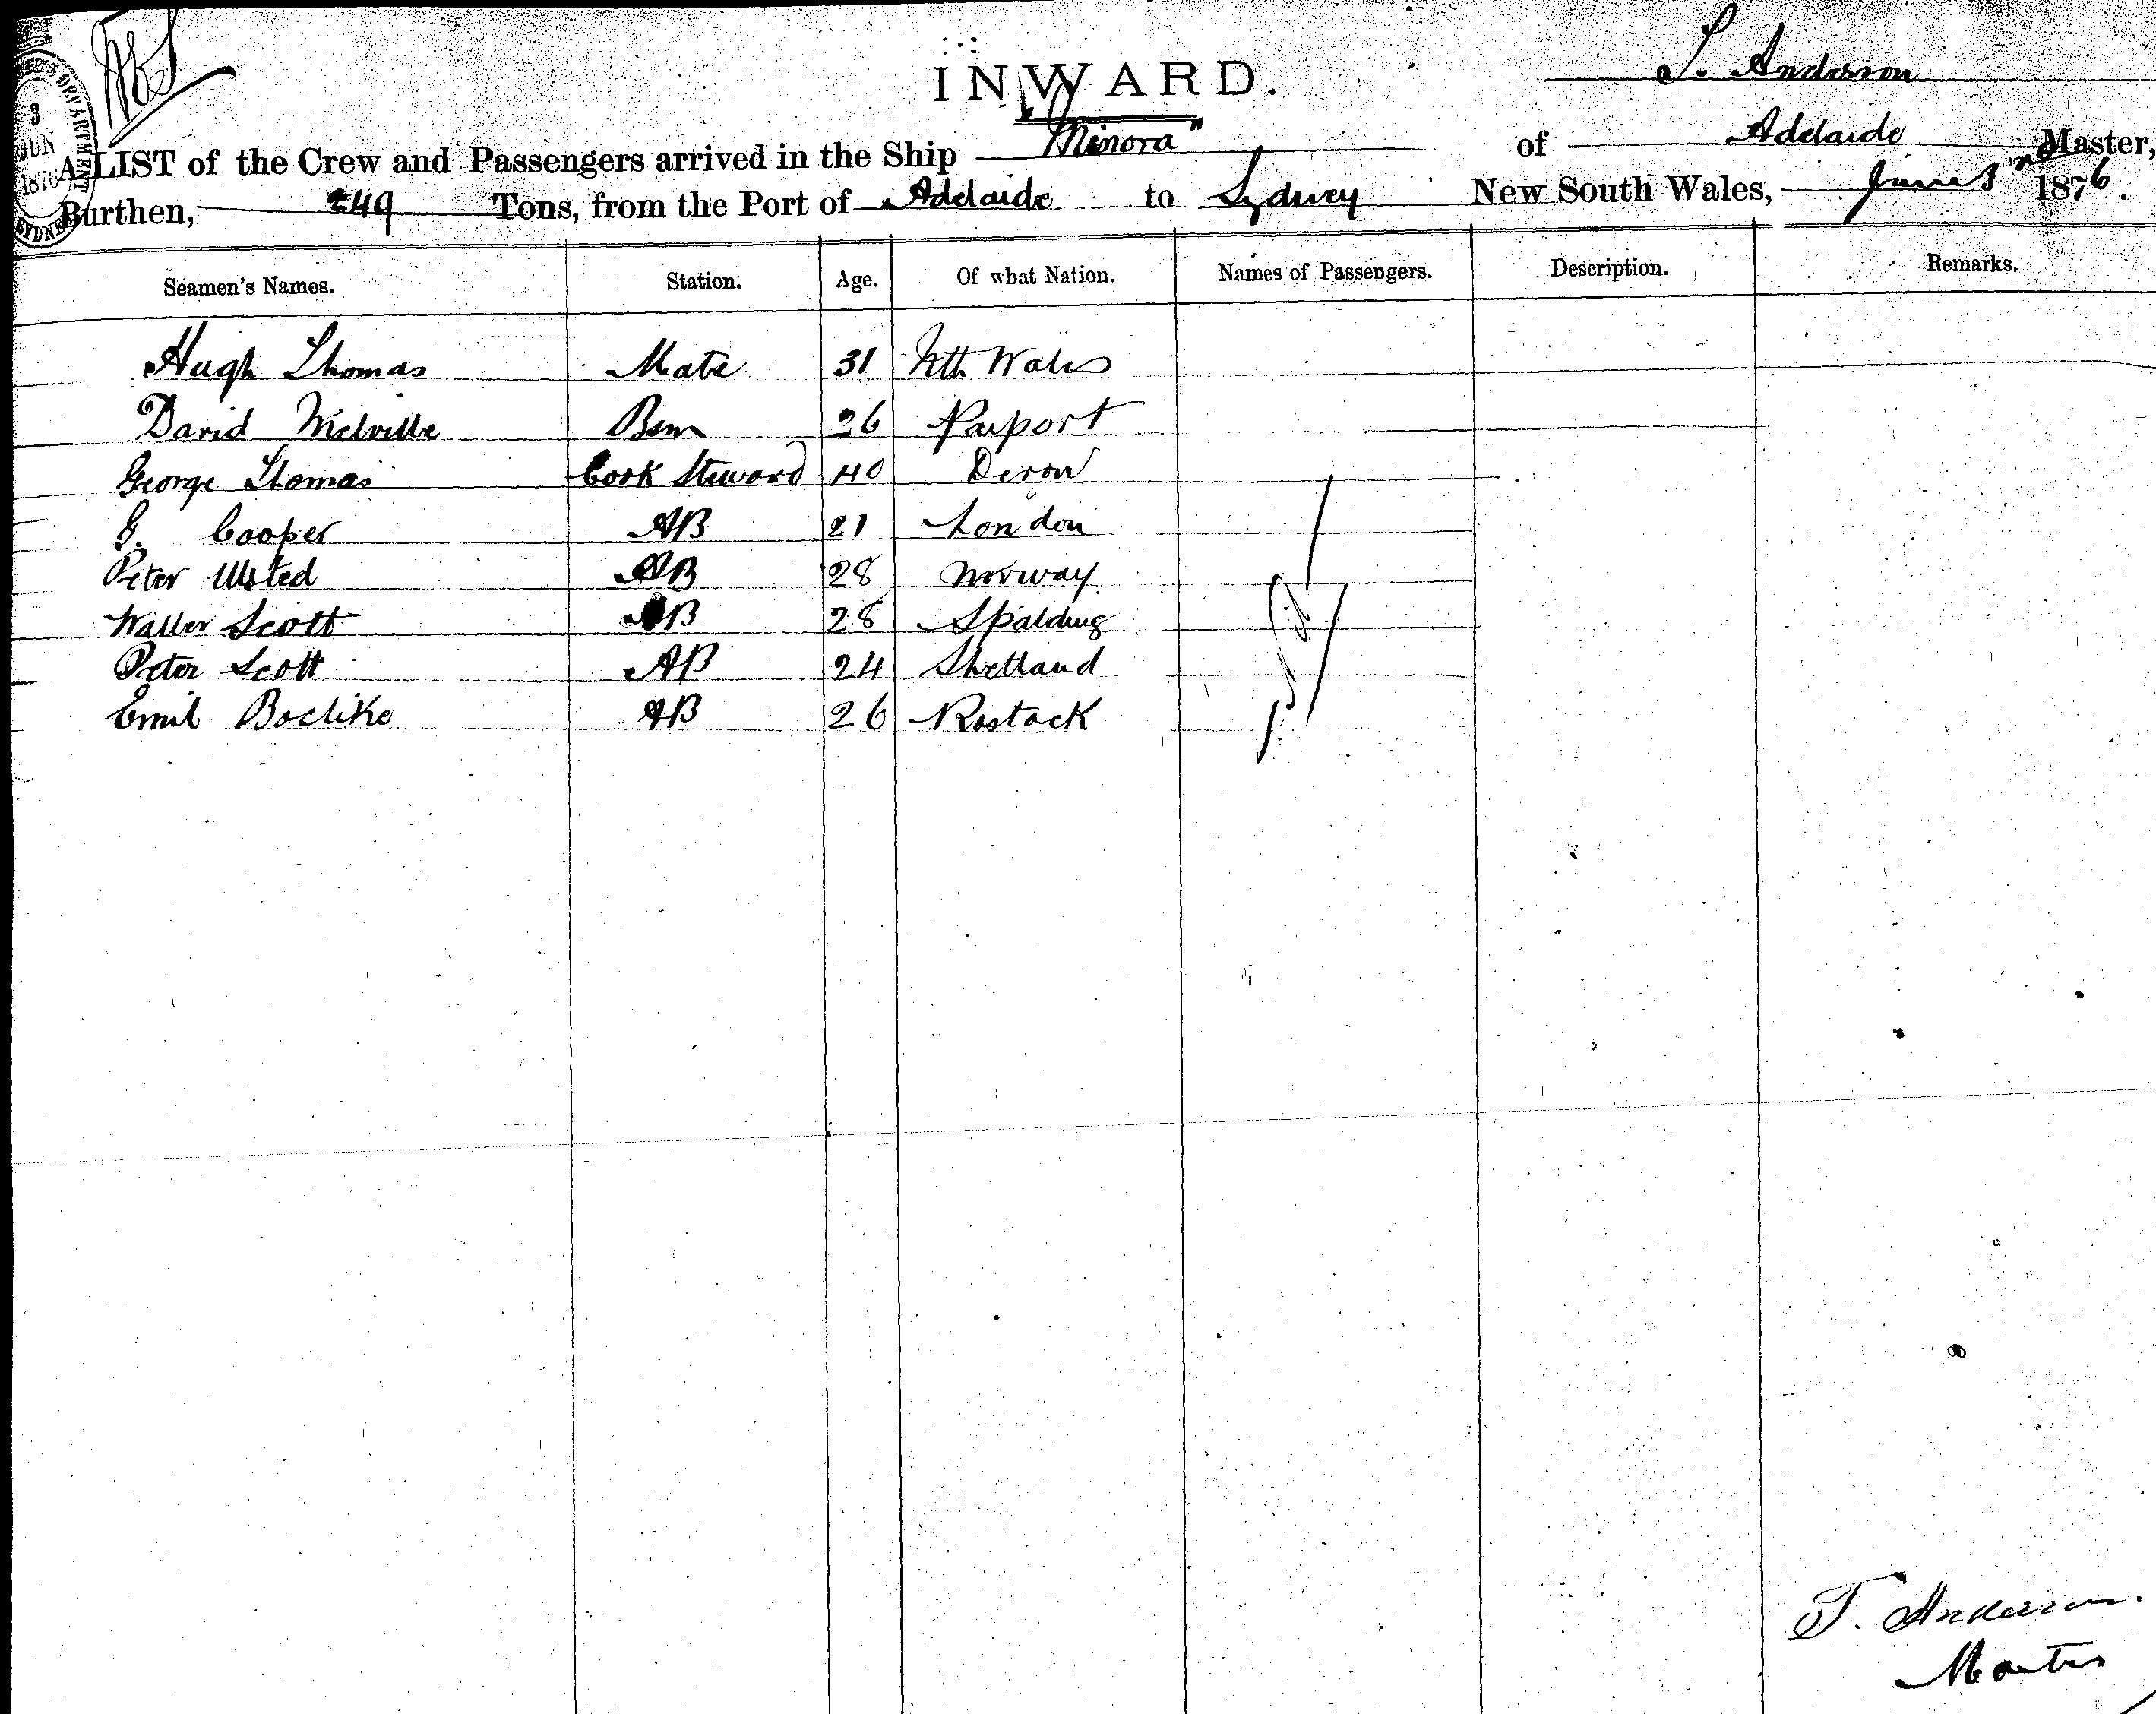 INWARD.
T. Anderson
A LIST of the Crew and Passengers arrived in the Ship "Minora" of Adelaide Master,
Burthen, 249 Tons, from the Port of Adelaide to Sydney New South Wales, June 3rd 1876.
Seamen's Names. Station. Age. Of what Nation. Names of Passengers. Description. Remarks.
Hugh Thomas Mate 31 Nth Wales
David Melville Bsn 26 Parport
George Thomas Cook Steward 40 Devon
G. Cooper AB 21 London
Peter Ulsted AB 28 Norway
Walter Scott AB 28 Spalding
Peter Scott AB 24 Shetland
Emil Boclike AB 26 Rostack
T. Anderson.
Master
3
JUN
1876